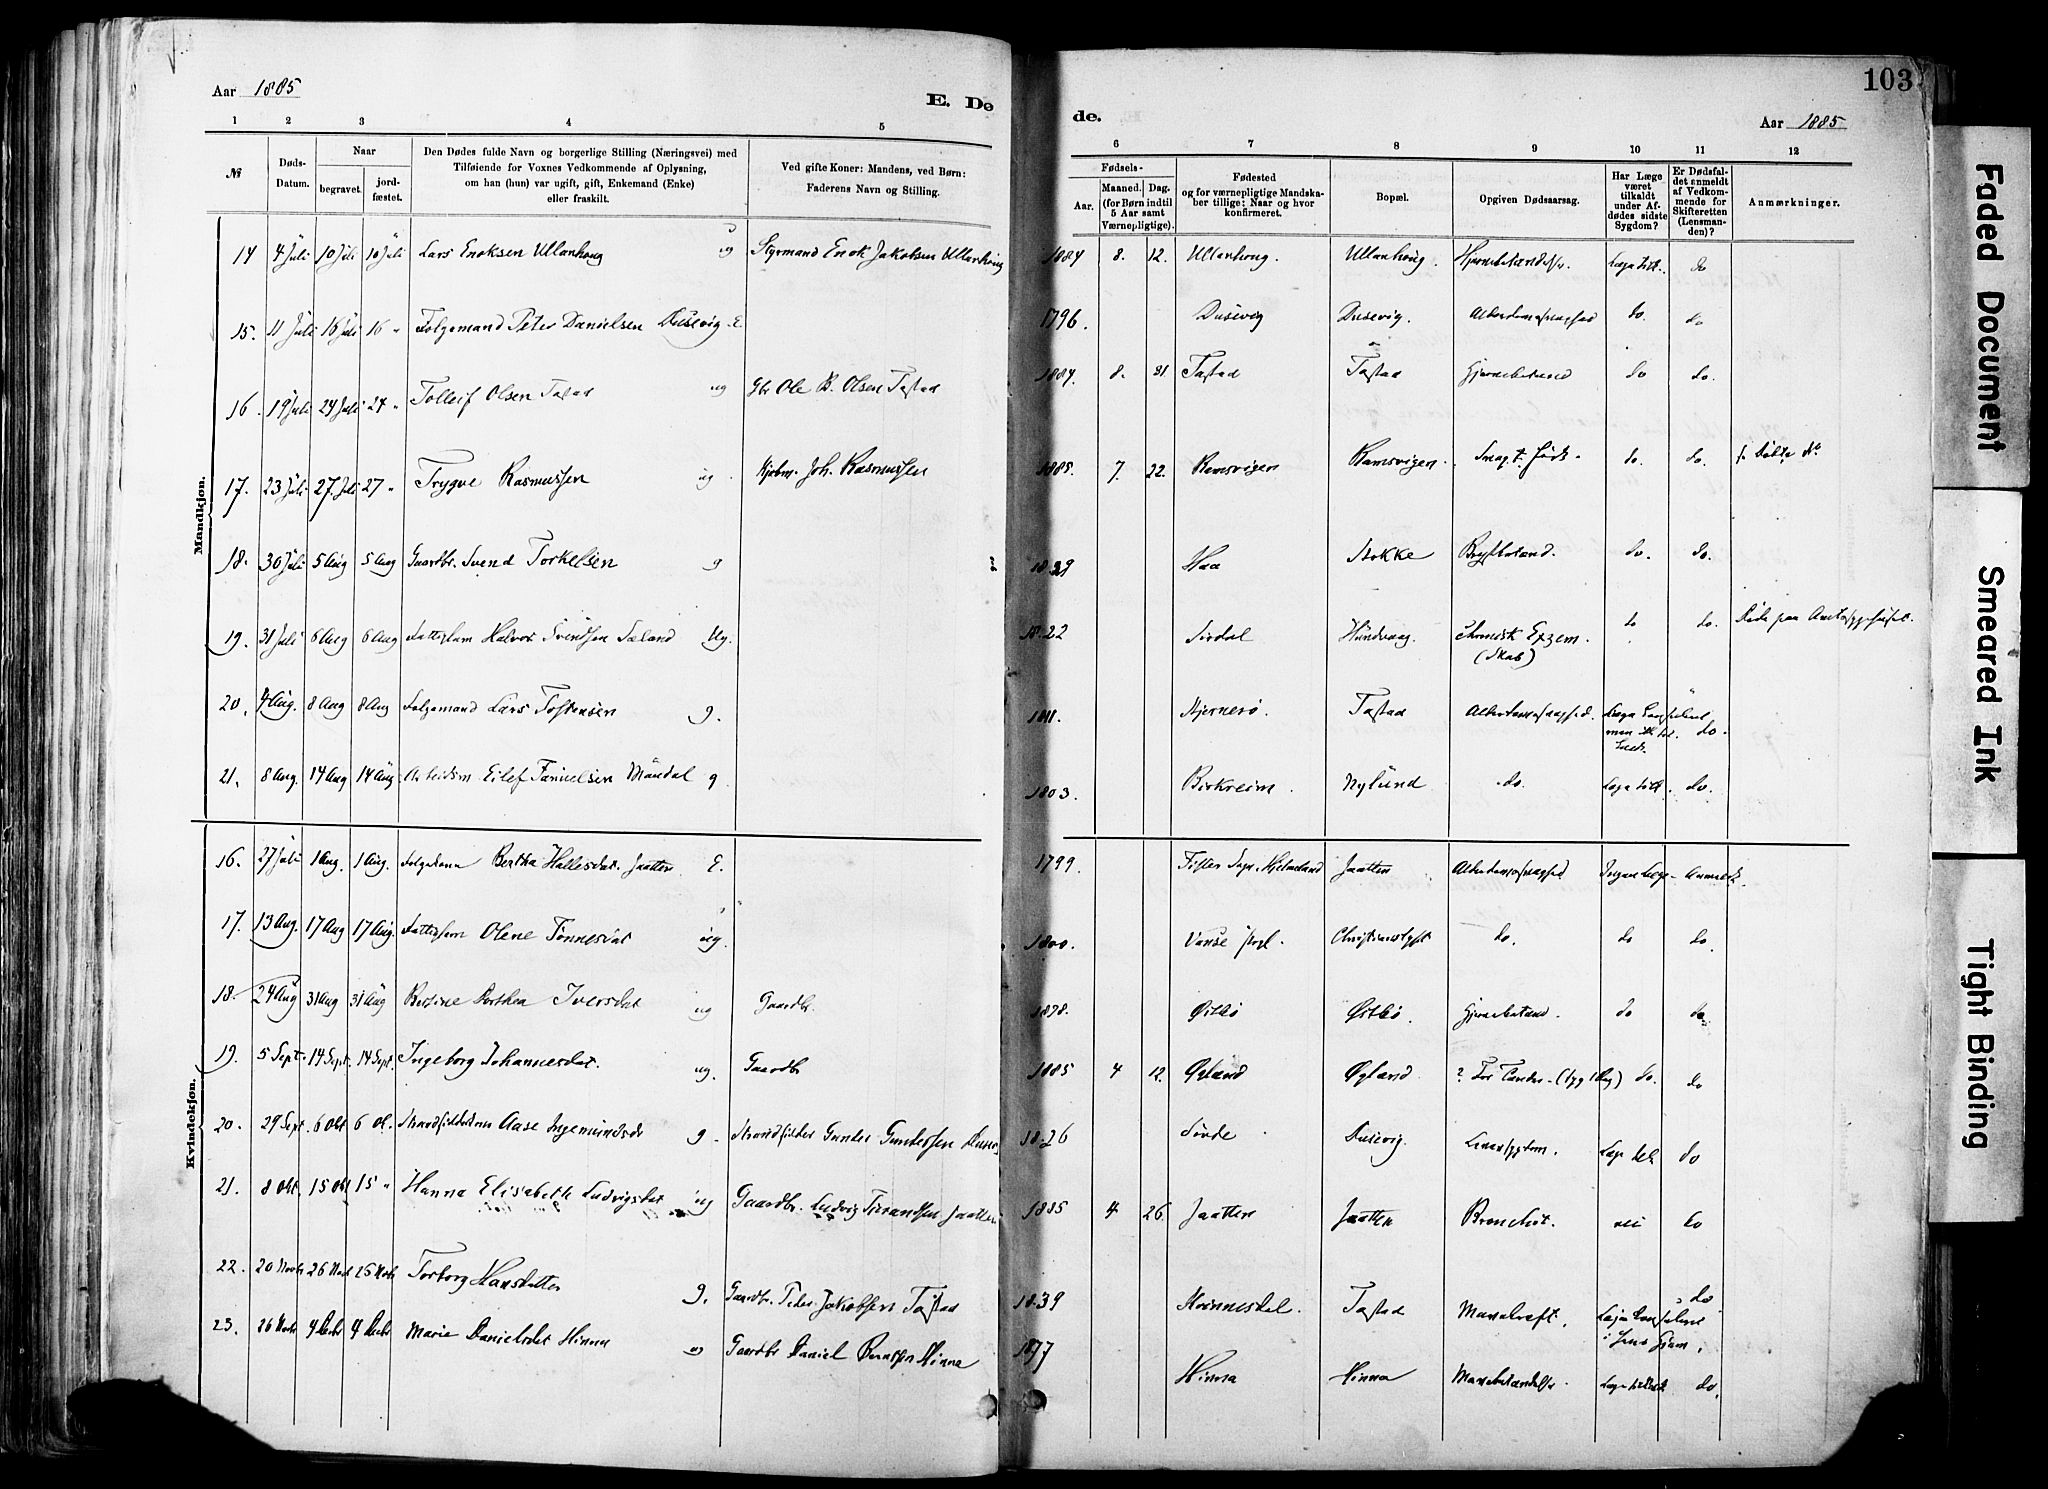 Aar 1885
E. De
1 2 3 4 5
№
Døds-Datum.
Naar
begravet.
jord-fæstet.
Den Dødes fulde Navn og borgerlige Stilling (Næringsvei) med
Tilføiende for Voxnes Vedkommende af Oplysning,
om han (hun) var ugift, gift, Enkemand (Enke)
eller fraskilt.
Ved gifte Koner: Mandens, ved Børn:
Faderens Navn og Stilling.
Mandkjøn.
14 4 Juli 10 Juli 10 Juli Lars Enoksen Ullanhoug ug Styrmand Enok Jakobsen Ullanhoug
15. 11 Juli 16 Juli 16 " Folgemand Peter Danielsen Dusevig E.
16. 19 Juli 24 Juli 24 " Tolleif Olsen Tastad ug Gbr Ole B. Olsen Tastad
17. 23 Juli 27 Juli 27 " Trygve Rasmussen ug. Kjøbm. Joh. Rasmussen
18. 30 Juli 5 Aug 5 Aug Gaardbr. Svend Torkelsen g
19. 31 Juli 6 Aug 6 Aug Fattiglem Halvor Svendsen Sæland Ug.
20. 4 Aug. 8 Aug 8 Aug Folgemand Lars Tostensen g.
21. 8 Aug. 14 Aug 14 Aug Arbeidsm Eilef Mandal g
Kvindekjøn.
16. 27 Juli 1 Aug. 1 Aug. Bertha Hallesdat. Jaatten E.
17. 13 Aug. 17 Aug 17 Aug. Fattiglem Olene Tønnesdat ug.
18. 24 Aug 31 Aug 31 Aug Berthea Iversdat ug Gaardbr.
19. 5 Sept. 14 Sept. 14 Sept. Ingeborg Johannesdat. ug. Gaardbr
20. 29 Sept. 6 Okt 6 O. Aase Ingemundsdr g. Strandsidder Gunder Gundersen
21. 8 Okt. 15 Okt 15 " Hanna Elisabeth Ludvigsdat ug Gaardbr. Ludvig Jaatten
22. 20 Novbr 26 Novbr 26 Novbr Torborg Hansdatter g. Gaardbr. Peder Jakobsen Tastad
23. 26 Novbr 4 Decbr 4 Decbr Marie Danielsdat Hinna ug Gaardbr Daniel Hinna
103
de.
Aar 1885
6 7 8 9 10 11 12
Fødsels-
Aar.
Maaned. Dag.
(for Børn indtil
5 Aar samt
Værnepligtige).
Fødested
og for værnepligtige Mandska-
ber tillige: Naar og hvor
konfirmeret.
Bopæl.
Opgiven Dødsaarsag.
Har Læge
været
tilkaldt
under Af-
dødes sidste
Sygdom?
Er Dødsfal-
det anmeldt
af Vedkom-
mende for
Skifteretten
(Lensman-
den)?
Anmærkninger.
1884 8. 12. Ullanhoug. Ullanhoug. Hjernebetændelse. Læge tilk. do
1796. Dusevig Dusevig. Alderdomssvaghed do. do
1884. 8. 31 Tastad Tastad Hjernebetænd do do.
1885. 7. 22. Ramsvigen Ramsvigen. do. do.
1829 Haa Stokke Brystbetænd. do. do.
1822 Sirdal Hundvaag. chronisk Exzem. do do. Døde paa Amtssygehuset.
(Skab)
1811. Hjernerø. Tastad Alderdomssvaghed. do.
1803. Birkreim. Nylund do. Læge tilk. do.
1799 Fister Sogn, Hjelmeland Jaatten Alderdomssvaghed Ingen Læge Anmeldt.
1800. Vanse Christianslyst do. do do.
1878. Østbø Østbø. Hjernebetænd. do do
1885 4 12. Øgland Øgland ? For Tænder (syg 1 Dag) do. do
1826 Dusevig. do
1885 4 26. Jaatten Jaatten Bronchit. nei do
1839 Kvinnesdal. Tastad Mavekræft. do
1877 Hinna Hinna Mavebetændelse. Læge tilkaldt do.
Faded Document
Smeared Ink
Tight Binding